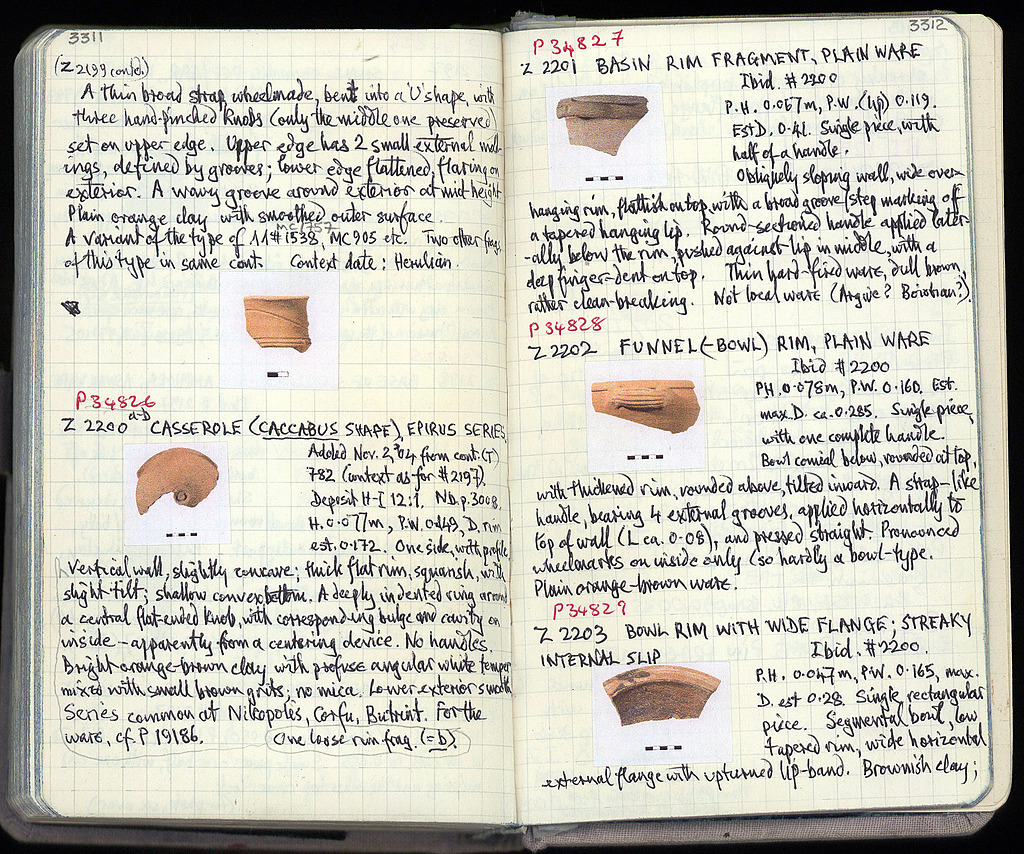 3311
(Z 2199 contd.)
A thin broad strap, wheelmade, bent into a 'U' shape, with
three hand-pinched knobs (only the middle one preserved)
set on upper edge. Upper edge has 2 small external mold-
ings, defined by grooves; lower edge flattened, flaring on
exterior. A wavy groove around exterior at mid height
Plain orange clay with smoothed outer surface.
MC1757
A variant of the type of 11#1538, MC 905 etc. Two other frags
of this type in same cont. Context date: Herulian.
P 34826
a-b
Z 2200 CASSEROLE (CACCABUS SHAPE), EPIRUS SERIES
Added Nov. 2, '04 from cont. (T)
782 (context as for #2197).
Deposit H-I 12:1. NB. p. 3008.
H. 0.077m, P.W. 0.149, D. rim
est. 0.172. One side, with profile
Vertical wall, slightly concave; thick flat rim, squarish, with
slight tilt; shallow convex bottom. A deeply indented ring around
a central flat-ended knob, with corresponding bulge and cavity on
inside - apparently from a centering device. No handles.
Bright orange-brown clay with profuse angular white temper
mixed with small brown grits; no mica. Lower exterior smooth
Series common at Nikopolis, Corfu, Butrint. For the
ware, cf. P 19186. One loose rim frag. (=b).
3312
P 34827
Z 2201 BASIN RIM FRAGMENT, PLAIN WARE
Ibid. #2200
P.H. 0.067m, P.W. (lip) 0.119.
Est D. 0.41. Single piece, with
half of a handle.
Obliquely sloping wall, wide over-
hanging rim, flattish on top, with a broad groove/step marking off
a tapered hanging lip. Round-sectioned handle applied later-
-ally below the rim, pushed against lip in middle, with a
deep finger-dent on top. Thin hard-fired ware, dull brown,
rather clean-breaking. Not local ware (Argive? Boiotian?).
P 34828
Z 2202 FUNNEL(-BOWL) RIM, PLAIN WARE
Ibid #2200
PH. 0.078m, P.W. 0.160. Est.
max. D. ca. 0.285. Single piece,
with one complete handle.
Bowl conical below, rounded at top,
with thickened rim, rounded above, tilted inward. A strap-like
handle, bearing 4 external grooves, applied horizontally to
top of wall (L ca. 0.08), and pressed straight. Pronounced
wheelmarks on inside only (so hardly a bowl-type.
Plain orange-brown ware.
P34829
Z 2203 BOWL RIM WITH WIDE FLANGE; STREAKY
INTERNAL SLIP
Ibid. #2200.
P.H. 0.047m, P.W. 0.165, max.
D. est 0.28. Single, rectangular
piece. Segmental bowl, low,
tapered rim, wide horizontal
external flange with upturned lip-band. Brownish clay;